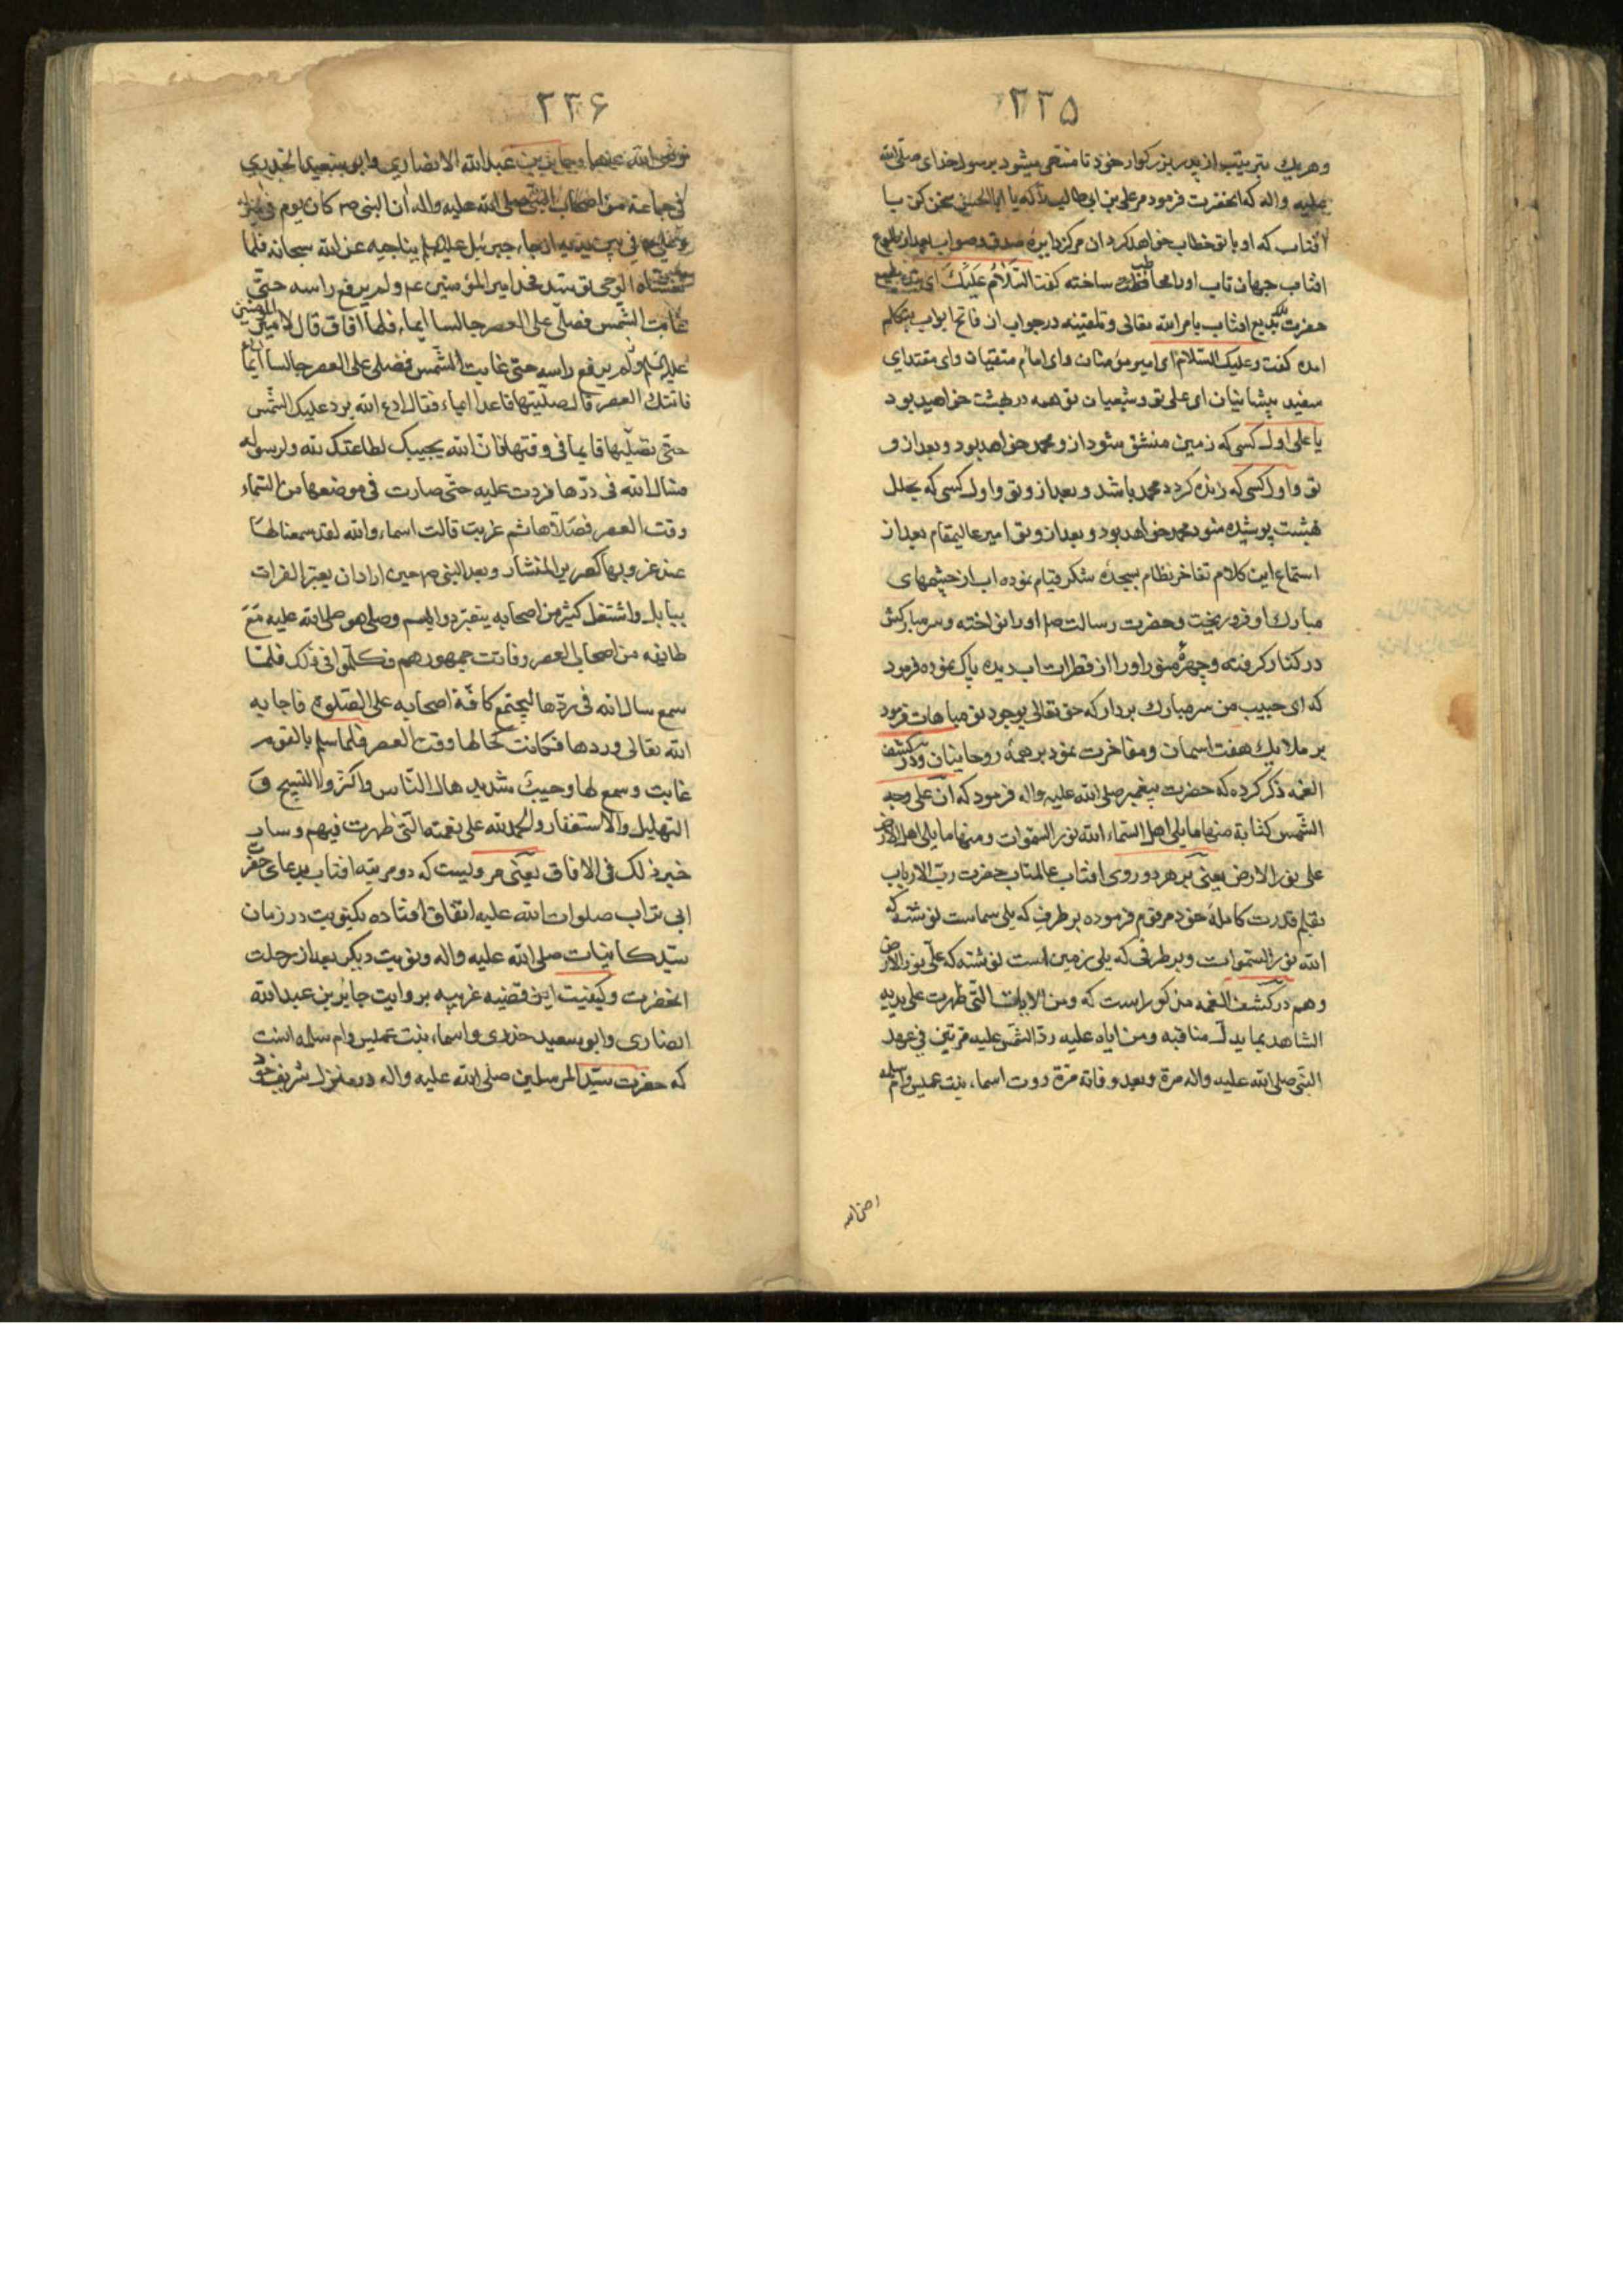 ۲۲۵
وهریك بترتیب از پدر بزرکوار خود تا منتهی میشود برسول خدای صلی الله
علیه واله که انحضرت فرمود مر علی بن ابی طالب را که یا ابا الحسن سخن کن با
افتاب که او با تو خطاب خواهد کرد ان مرکز دایرهٔ صدق و صواب بعد از طلوع
افتاب جهان تاب اورا مخاطب ساخته کفت السّلام علیك ای
حضرت افتاب بامر الله تعالی وتلقینه در جواب ان فاتح ابواب بتکلم
امده کفت وعلیك السّلام ای امیر مؤمنان وای امام متقیان وای مقتدای
سفید پیشانیان ای علی تو وشیعیان تو همه در بهشت خواهید بود
یا علی اول کسی که زمین منشق شود از و محمد خواهد بود و بعد از و
تو واول کسی که زنده کردد محمد باشد و بعد از و تو واول کسی که بحلل
بهشت پوشیده شود محمد خواهد بود و بعد از و تو امیر عالیمقام بعد از
استماع این کلام تفاخر نظام بسجدهٔ شکر قیام نموده اب از چشمهای
مبارك او فرو ریخت وحضرت رسالت ص اورا نواخته و سر مبارکش
در کنار کرفته وچهرهٔ منور اورا از قطرات اب دیده پاک نموده فرمود
که ای حبیب من سر مبارك بردار که حق تعالی بوجود تو مباهات فرمود
بر ملایك هفت اسمان ومفاخرت نمود بر همهٔ روحانیان ودر کشف
الغمه ذکر کرده که حضرت پیغمبر صلی الله علیه واله فرمود که انّ علی وجه
الشّمس کتابة منها ما یلی اهل السّماء الله نور السّموات ومنها ما یلی اهل الارض
علی نور الارض یعنی بر هر دو روی افتاب عالمتاب حضرت ربّ الارباب
بقلم قدرت کاملهٔ خود مرقوم فرموده بر طرفی که یلی سماست نوشته که
الله نور السّموات وبر طرفی که یلی زمین است نوشته که علی نور الارض
وهم در کشف الغمه مذکور است که ومن الایات التّی ظهرت علی یدیه
الشاهد بما یدل مناقبه ومزایاه علیه ردّ الشّمس علیه مرّتین فی عهد
النبّی صلی الله علیه واله مرة وبعد وفاته مرّة روت اسماء بنت عمیس وامّ سلمه
رضی الله
۲۲۶
رضی الله عنهما وجابر بن عبد الله الانصاری وابو سعید الخدری
فی جماعة من اصحاب النبّی صلی الله علیه واله ان النبی ص کان یوم فی منزله
وعلی ع بین یدیه اذ جاء جبرئیل علیه السلم یناجیه عن الله سبحانه فلما
تغشاه الوحی توسّد فخذ امیر المؤمنین عم ولم یرفع راسه حتّی
غابت الشّمس فصلّی علی العصر جالسا ایماء فلما افاق قال لامیر المؤمنین
علیه السلم ولم یرفع راسه حتی غابت الشّمس فصلّی علی العصر جالسا ایماء
فاتتك العصر قال صلّیتها قاعدا ایماء فقال ادع الله یرد علیك الشّمس
حتّی تصلّیها قایما فی وقتها فانّ الله یجیبك لطاعتك لله ولرسوله
فسال الله فی ردّها فردت علیه حتّی صارت فی موضعها من السّماء
وقت العصر فصلّاها ثم غربت قالت اسماء والله لقد سمعنا لها
عند غروبها کصریر المنشار وبعد النبی ص حین اراد ان یعبر الفرات
ببابل واشتغل کثیر من اصحابه بتعبیر دوابهم وصلی هو صلی الله علیه مع
طایفه من اصحابه العصر وفاتت جمهورهم فتکلّموا فی ذلك فلمّا
سمع سال الله فی ردّها لیجتمع کافّة اصحابه علی الصّلوة فاجابه
الله تعالی وردها فکانت کحالها وقت العصر فلما سلم بالقوم
غابت وسمع لها وجیب شدید هال النّاس واکثروا التسبیح و
التهلیل والاستغفار والحمد لله علی نعمته الّتی ظهرت فیهم وسار
خبر ذلك فی الافاق یعنی مرویست که دو مرتبه افتاب بدعای حضرت
ابی تراب صلوات الله علیه اتفاق افتاده یکنوبت در زمان
سیّد کاینات صلی الله علیه واله ونوبت دیکر بعد از رحلت
انحضرت وکیفیت این قضیه غریبه بروایت جابر بن عبد الله
انصاری وابو سعید خذری واسماء بنت عمیس وام سلمه انست
که حضرت سیّد المرسلین صلی الله علیه واله در منزل شریف خود